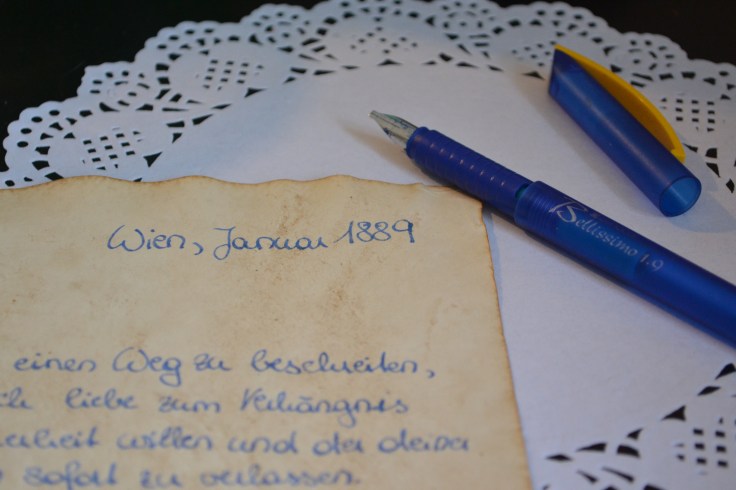 Wien, Januar 1889
einen Weg zu beschreiten,
ch liebe zum Verhängnis
erheit willen und der deiner
sofort zu verlassen.
Bellissimo 1.9